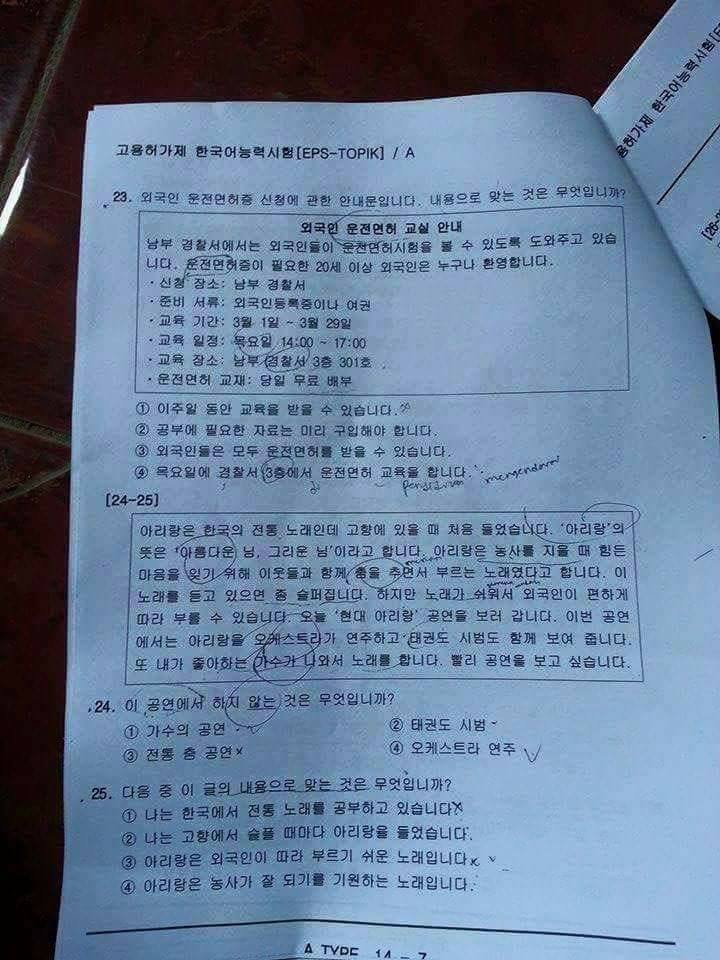 고용허가제 한국어능력시험[EPS-TOPIK] / A
고용허가제 한국어능력시험[E
23. 외국인 운전면허증 신청에 관한 안내문입니다. 내용으로 맞는 것은 무엇입니까?
외국인 운전면허 교실 안내
남부 경찰서에서는 외국인들이 운전면허시험을 볼 수 있도록 도와주고 있습
니다. 운전면허증이 필요한 20세 이상 외국인은 누구나 환영합니다.
· 신청 장소: 남부 경찰서
· 준비 서류: 외국인등록증이나 여권
· 교육 기간: 3월 1일 ~ 3월 29일
· 교육 일정: 목요일 14:00 ~ 17:00
· 교육 장소: 남부 경찰서 3층 301호
· 운전면허 교재: 당일 무료 배부
① 이주일 동안 교육을 받을 수 있습니다. x
② 공부에 필요한 자료는 미리 구입해야 합니다.
③ 외국인들은 모두 운전면허를 받을 수 있습니다.
④ 목요일에 경찰서 3층에서 운전면허 교육을 합니다.
mengendarai
[24-25]
아리랑은 한국의 전통 노래인데 고향에 있을 때 처음 들었습니다. '아리랑'의
뜻은 '아름다운 님, 그리운 님'이라고 합니다. 아리랑은 농사를 지을 때 힘든
마음을 잊기 위해 이웃들과 함께 춤을 추면서 부르는 노래였다고 합니다. 이
노래를 듣고 있으면 좀 슬퍼집니다. 하지만 노래가 쉬워서 외국인이 편하게
따라 부를 수 있습니다. 오늘 '현대 아리랑' 공연을 보러 갑니다. 이번 공연
에서는 아리랑을 오케스트라가 연주하고 태권도 시범도 함께 보여 줍니다.
또 내가 좋아하는 가수가 나와서 노래를 합니다. 빨리 공연을 보고 싶습니다.
24. 이 공연에서 하지 않는 것은 무엇입니까?
① 가수의 공연 ② 태권도 시범
③ 전통 춤 공연 x ④ 오케스트라 연주
25. 다음 중 이 글의 내용으로 맞는 것은 무엇입니까?
① 나는 한국에서 전통 노래를 공부하고 있습니다. x
② 나는 고향에서 슬플 때마다 아리랑을 들었습니다.
③ 아리랑은 외국인이 따라 부르기 쉬운 노래입니다. x
④ 아리랑은 농사가 잘 되기를 기원하는 노래입니다.
A TYPE 14 - 7